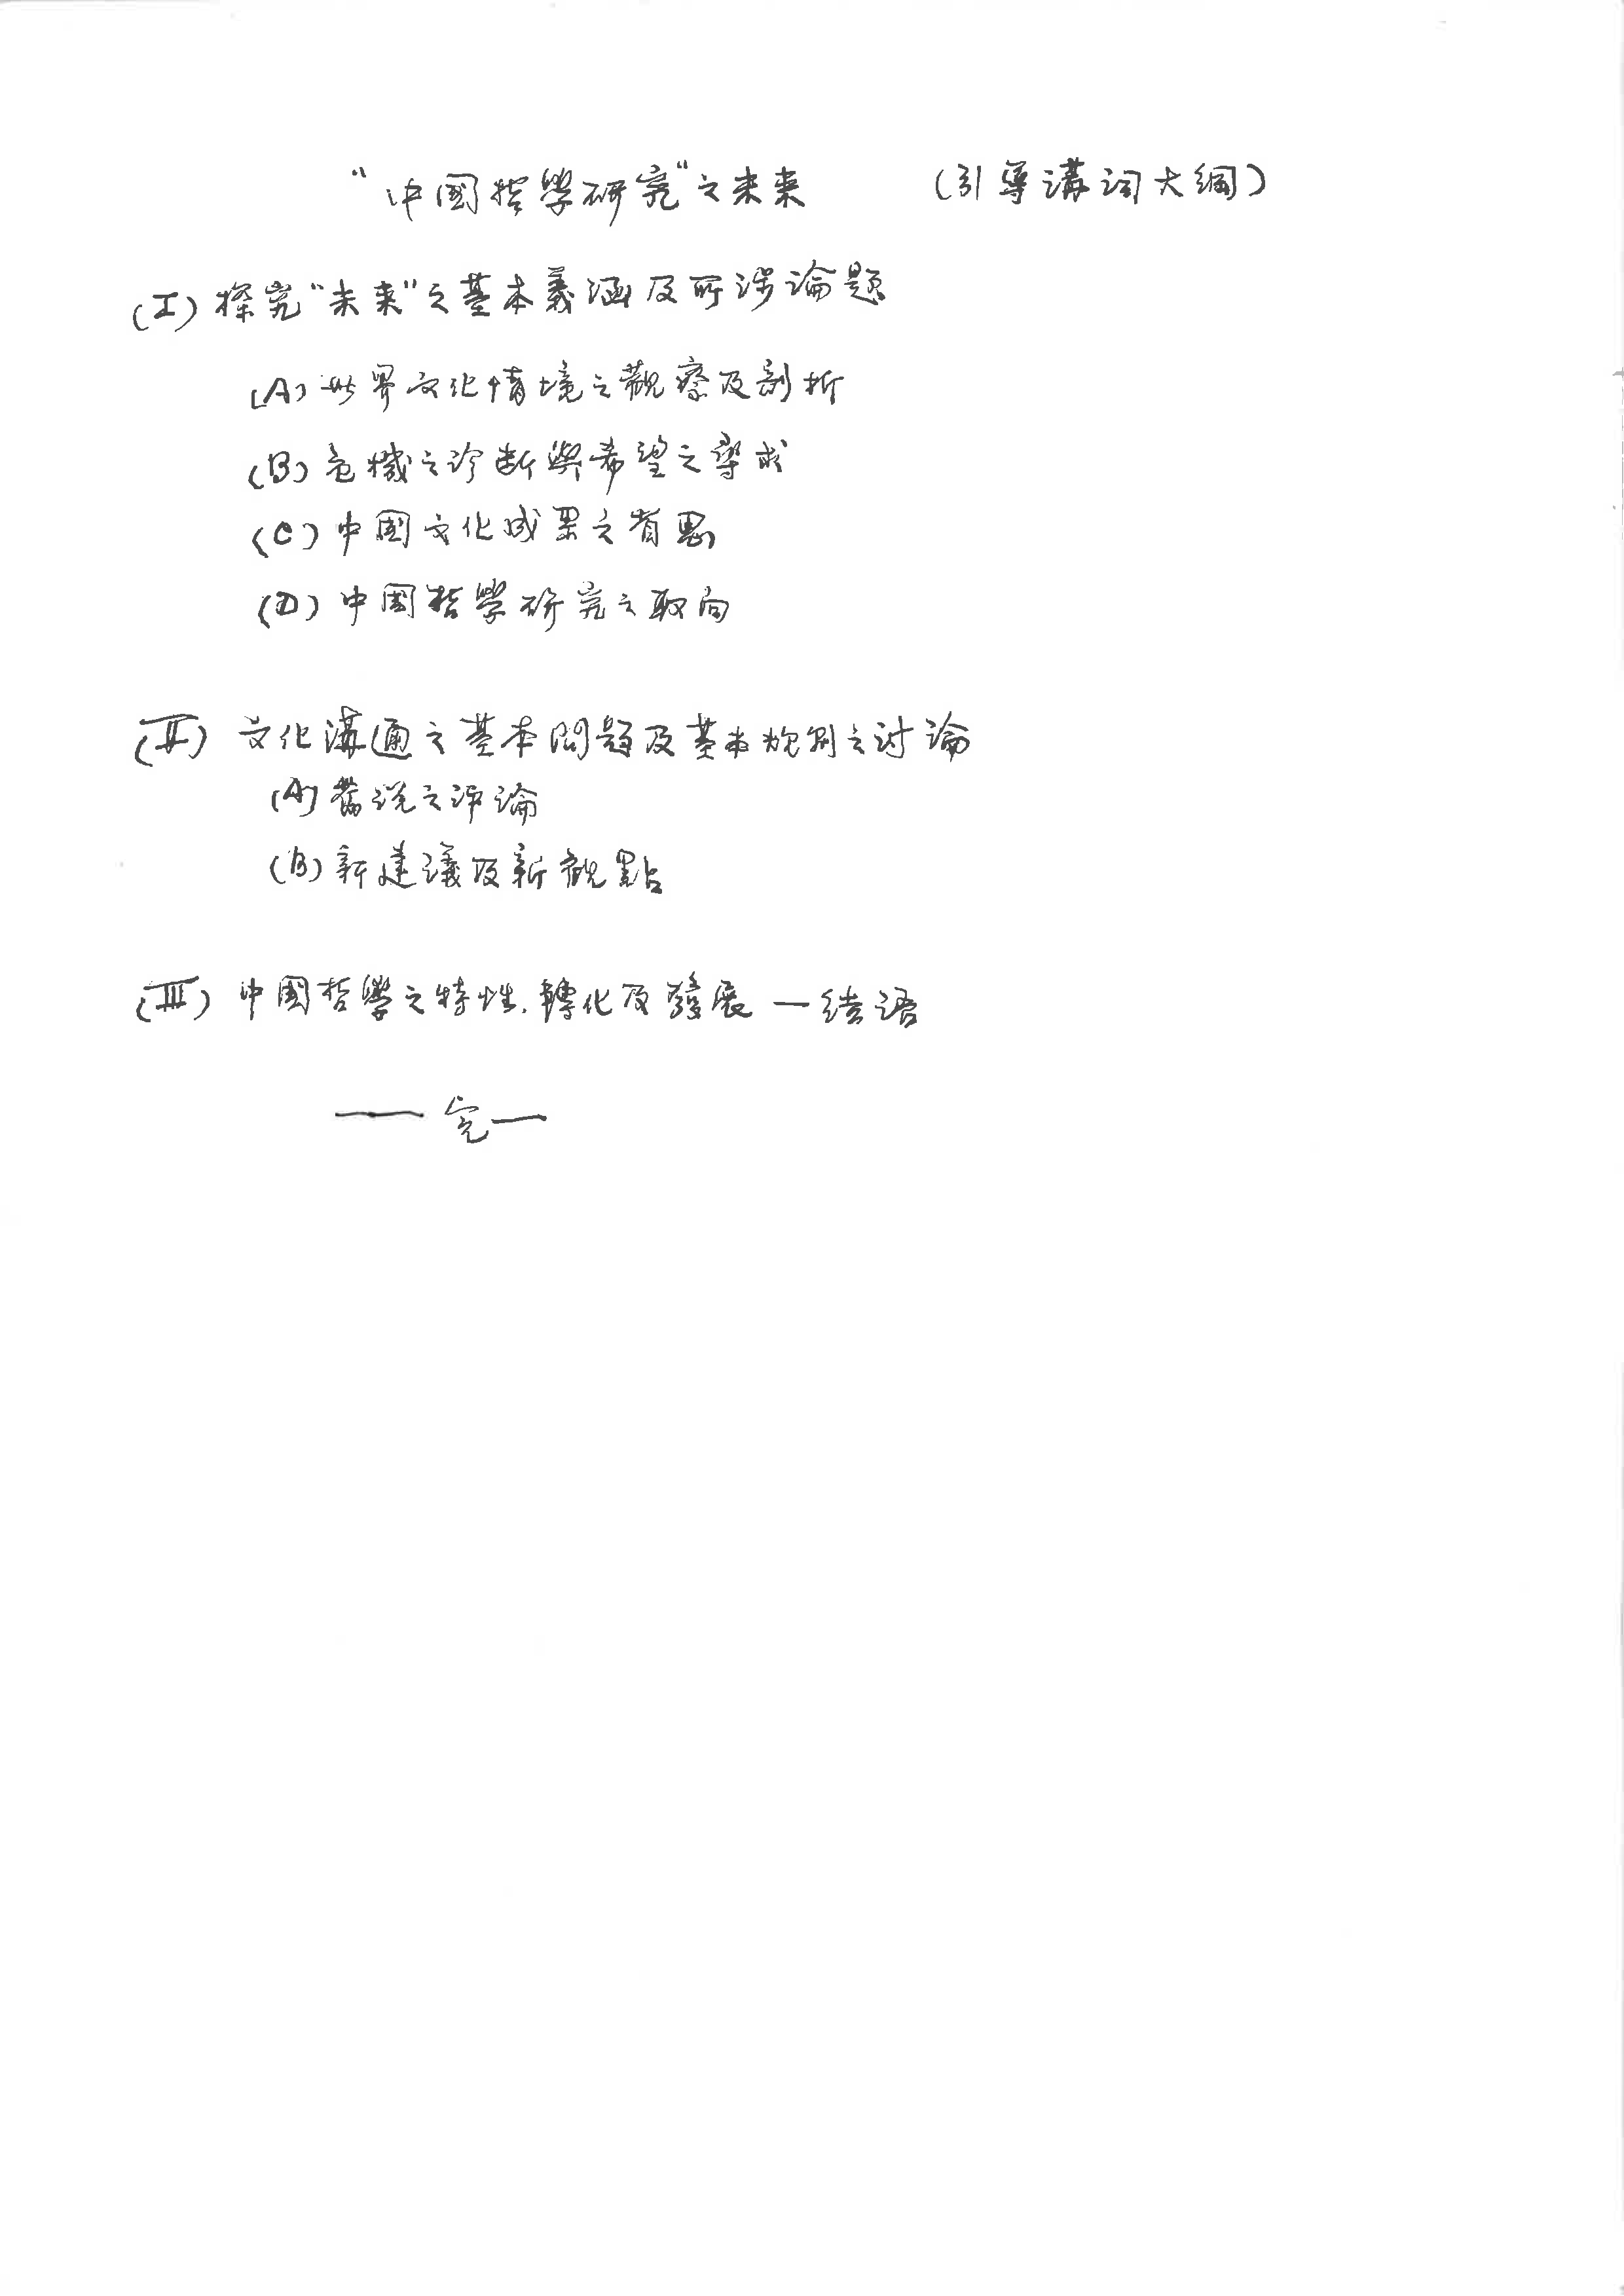 “中國哲學研究”之未來 (引導講詞大綱)
(I) 探究“未來”之基本義涵及所涉論題
(A) 世界文化情境之觀察及剖析
(B) 危機之診斷與希望之尋求
(C) 中國文化成果之省思
(D) 中國哲學研究之取向
(II) 文化溝通之基本問題及基本規則之討論
(A) 舊說之評論
(B) 新建議及新觀點
(III) 中國哲學之特性、轉化及發展 — 結語
—— 完 —